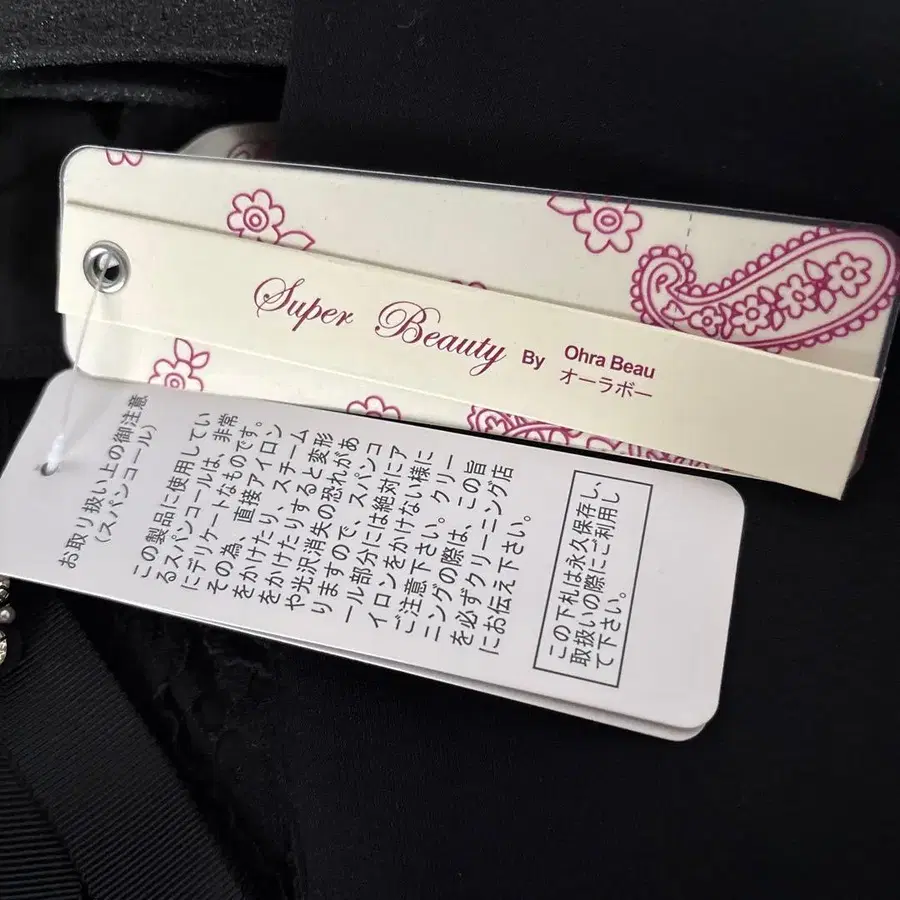 Super Beauty By Ohra Beau
オーラボー
お取り扱い上の御注意
（スパンコール）
この製品に使用してい
るスパンコールは、非常
にデリケートなものです。
その為、直接アイロン
をかけたり、スチーム
をかけたりすると変形
や光沢消失の恐れがあ
りますので、スパンコ
ール部分には絶対にア
イロンをかけない様に
ご注意下さい。クリー
ニングの際は、この旨
を必ずクリーニング店
にお伝え下さい。
この下札は永久保存し、
取扱いの際にご利用し
て下さい。